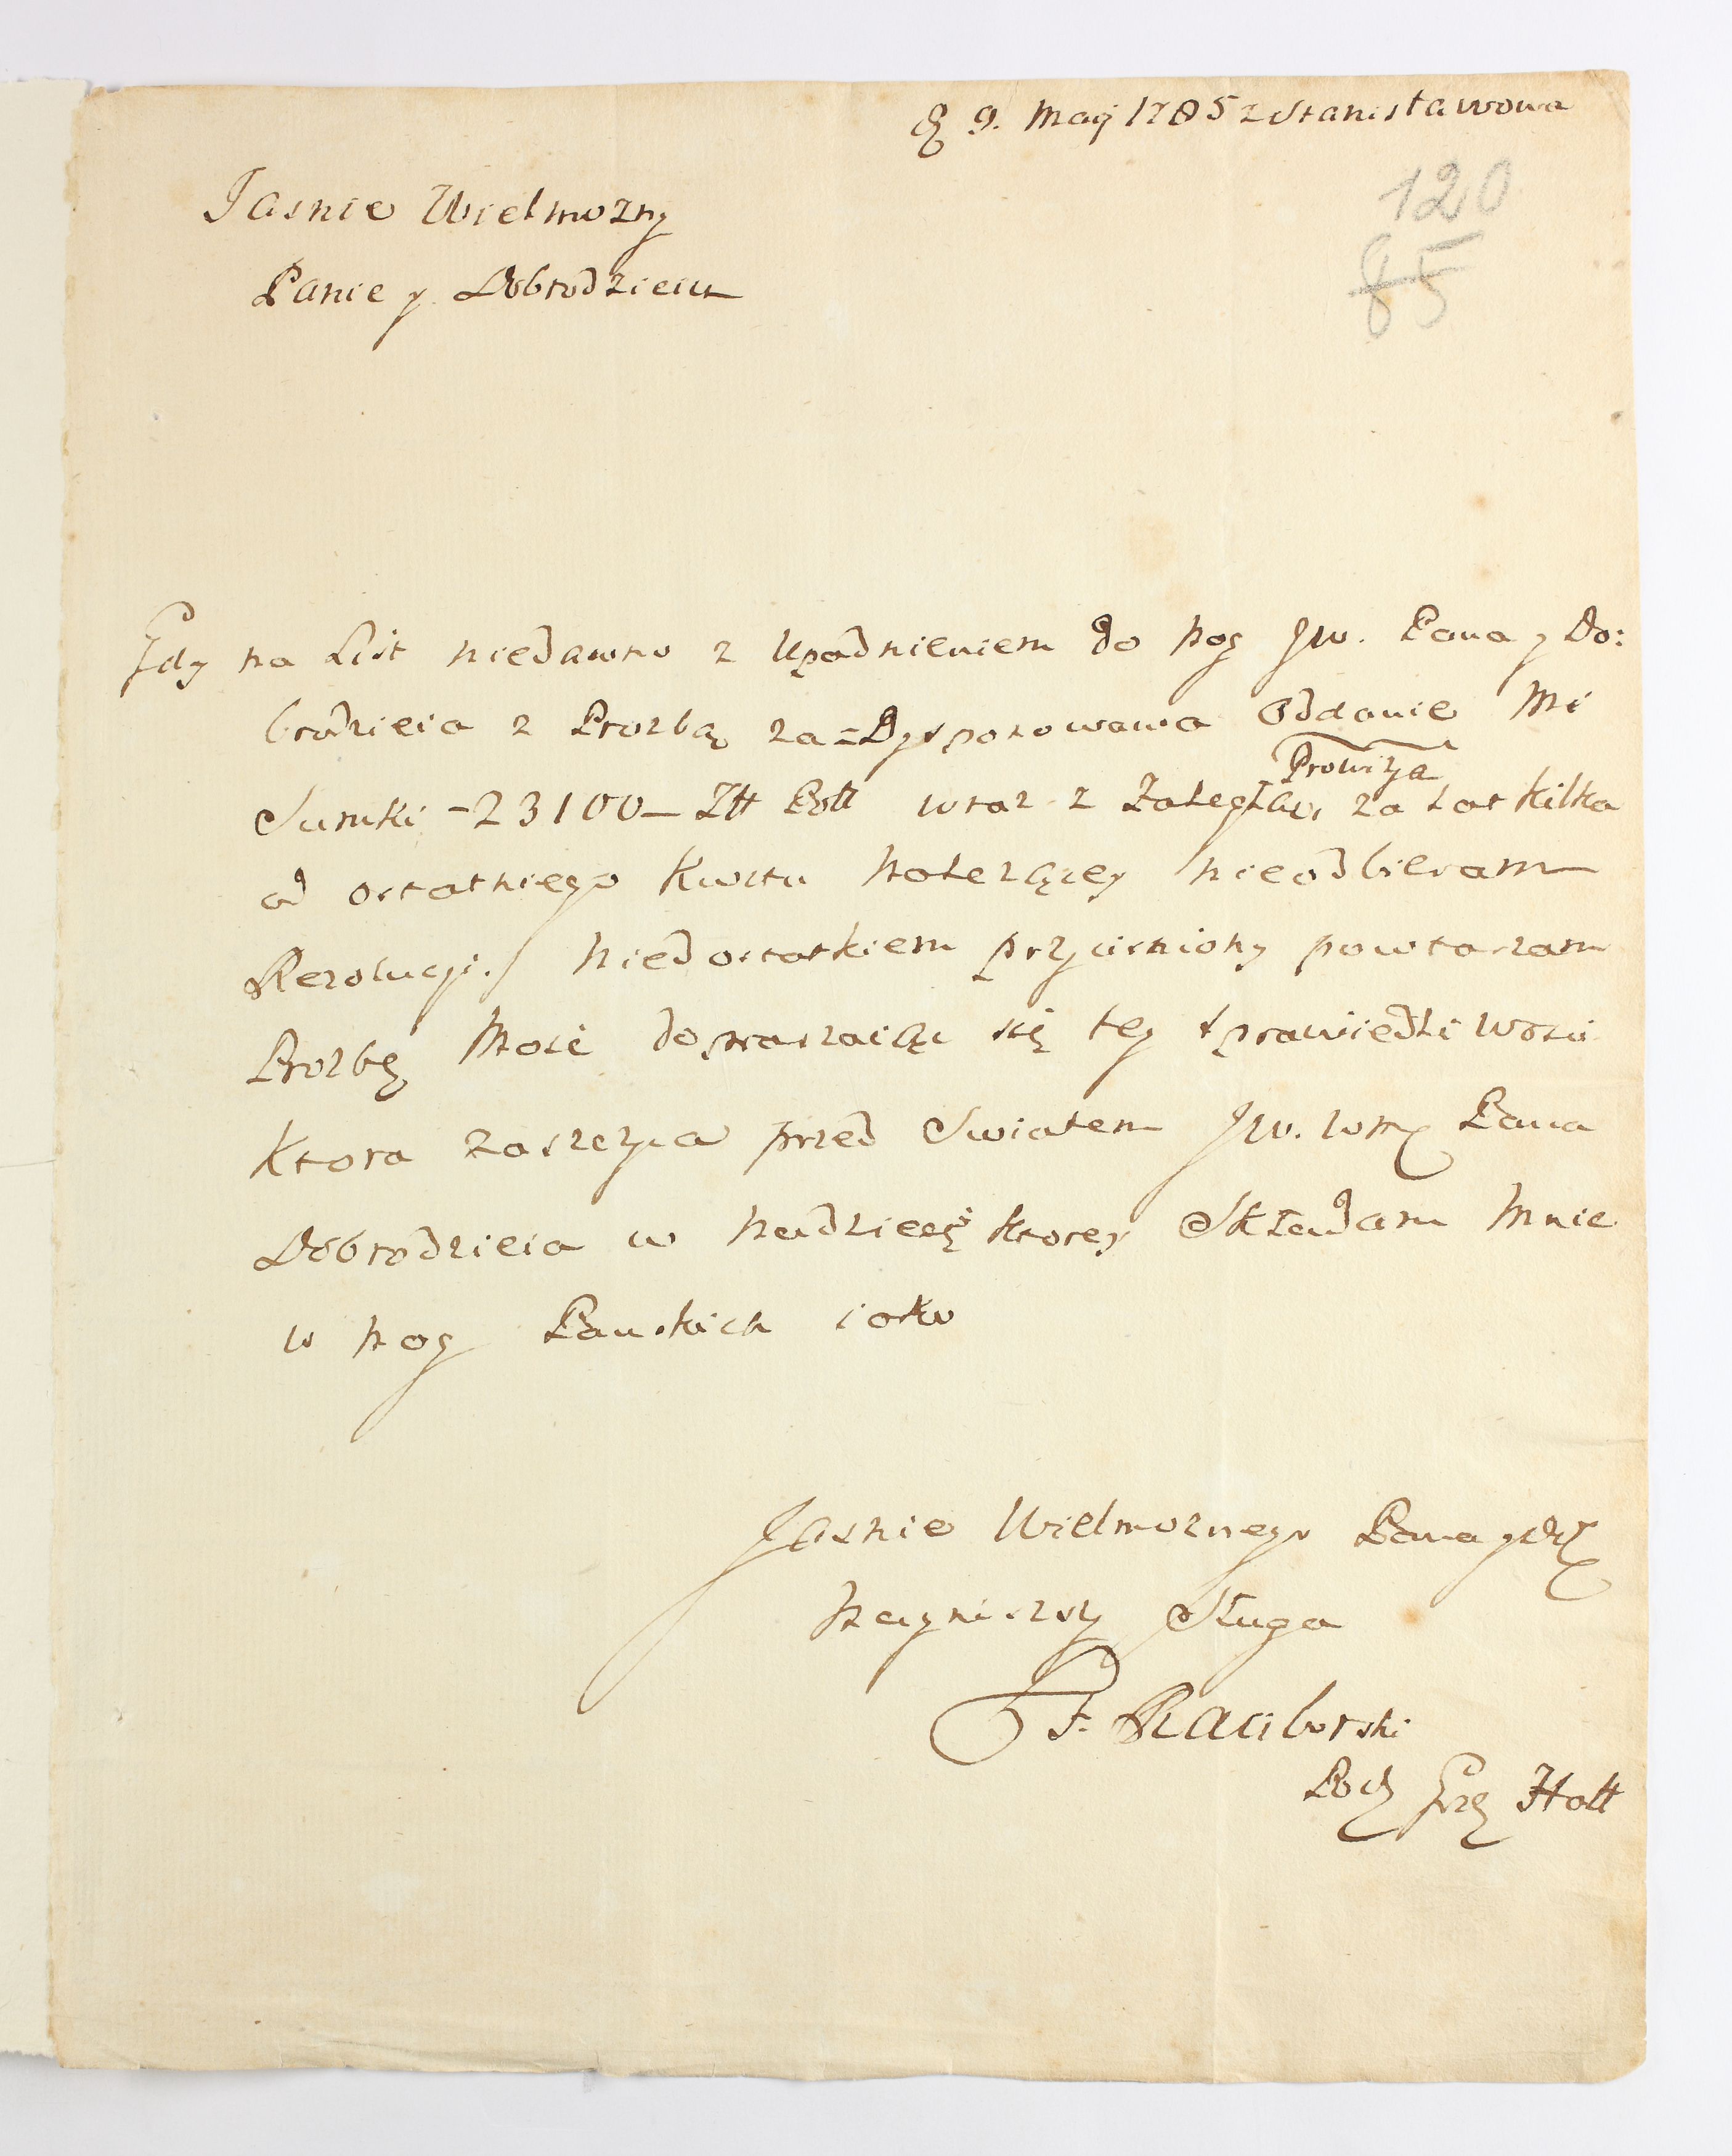 D 9. Maij 1785 z Stanisławowa
120
85
Jasnie Wielmozny
Panie y Dobrodzieiu
Gdy na List niedawno z Upadnieniem do nog JW. Pana y Do:
brodzieia z Prozbą za=Dysponowawa Oddanie Mi
Prowizyą
Summki -23100- Złł Poll wraz z Zaległą, za Lat kilka
od ostatniego Kwitu Nalezącey nieodbieram
Rezolucyi./ Niedostatkiem przycisniony powtarzam
Prozbę Moię dopraszaiąc się tey sprawiedliwosci
Ktora zaszczyca przed Swiatem JW. WM Pana
Dobrodzieia w Nadzieię ktorey Składam Mnie
u nog Panskich iako
Jasnie Wielmoznego Pana y D
Nayniszszy Sługa
F. Raciborski
Hall